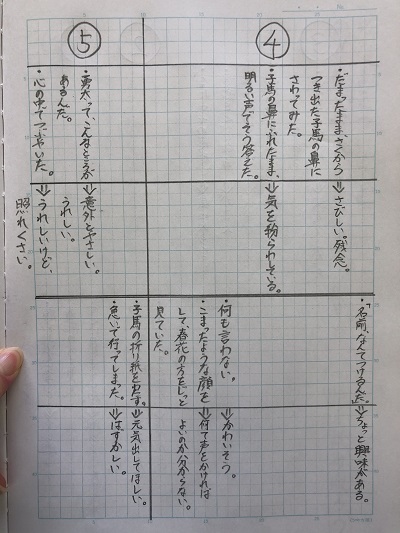 ④
・だまったまま、さかつ
つき出た子馬の鼻に
さわってみた。
⇒さびしい。残念。
・子馬の鼻にふれたまま、
明るい声でそう答えた。
⇒気を紛らわしている。
・「名前、なんてつけるんだ。」
⇒ちょっと興味がある。
・何も言わない。
⇒かわいそう。
・こまったような顔を
して、春花の方をじっと
見ていた。
⇒何て声をかければ
よいのか分からない。
⑤
・勇太って、こんなところが
あるんだ。
⇒意外とやさしい。
うれしい。
・心の中でつぶやいた。
⇒うれしいけど、
照れくさい。
・子馬の折り紙を出す。
⇒元気出してほしい。
・急いで行ってしまった。
⇒はずかしい。